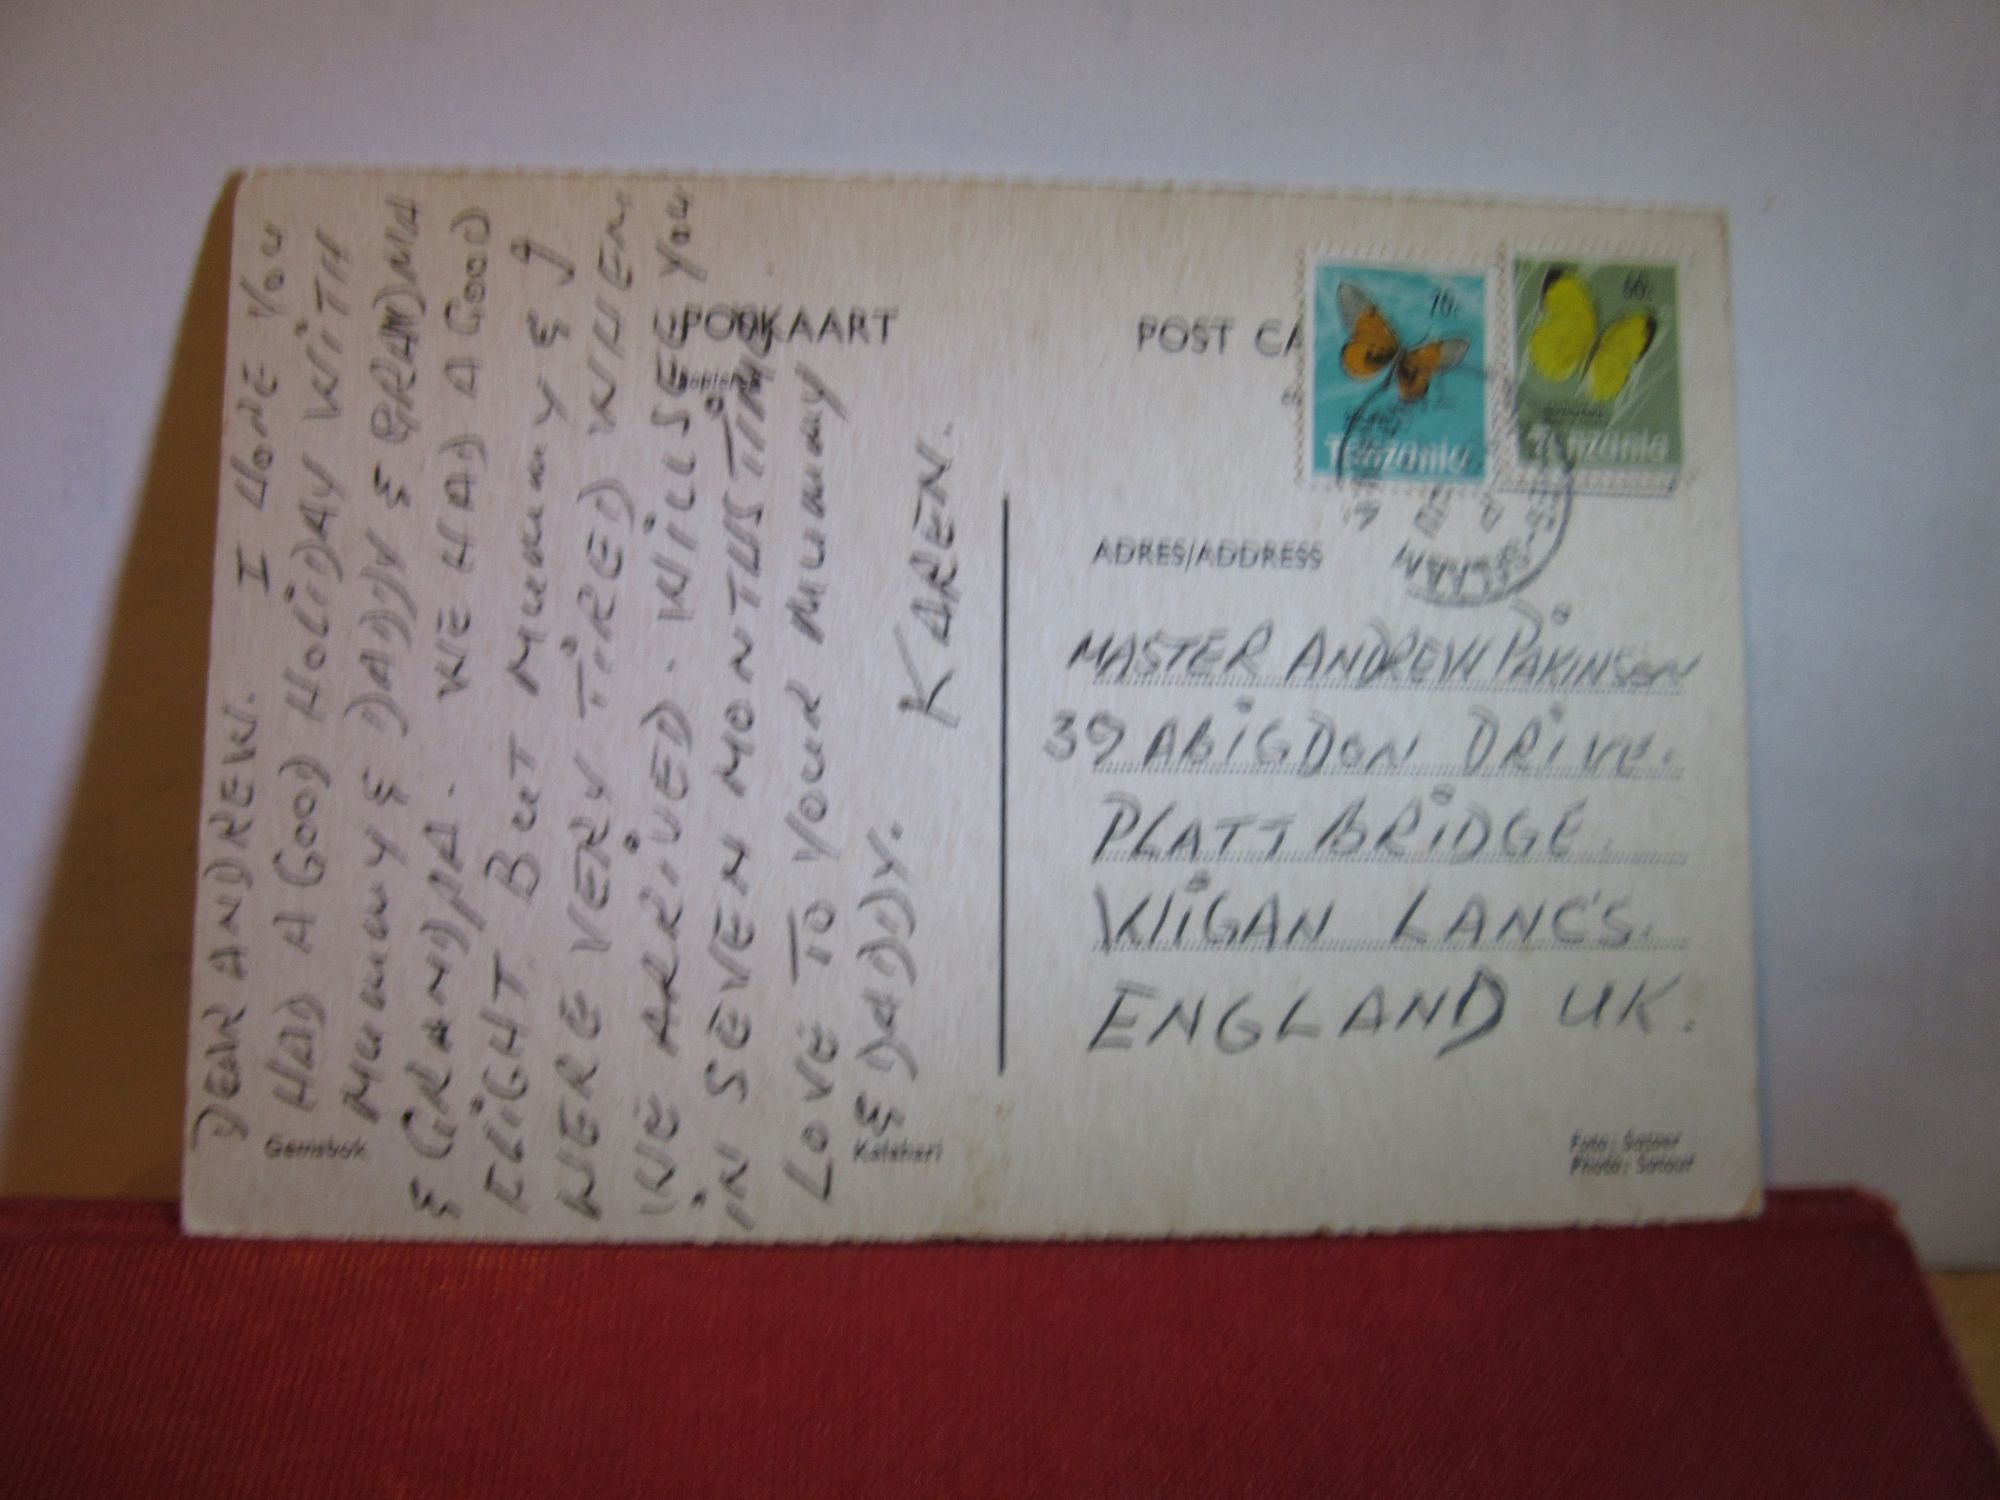 DEAR ANDREW. I HOPE YOU
HAD A GOOD HOLIDAY WITH
MUMMY & DADDY & GRANDMA
& GRANDPA. WE HAD A GOOD
FLIGHT. BUT MUMMY & I
WERE VERY TIRED WHEN
WE ARRIVED. WILL SEE YOU
IN SEVEN MONTHS TIME
LOVE TO YOUR MUMMY
& DADDY.
KAREN.
POSKAART
POST CA
70c
Tanzania
60c
Tanzania
ADRES/ADDRESS
MASTER ANDREW PAKINSON
39 ABIGDON DRIVE.
PLATT BRIDGE.
WIGAN LANC'S.
ENGLAND UK.
Gemsbok
Kalahari
Foto: Satour
Photo: Satour